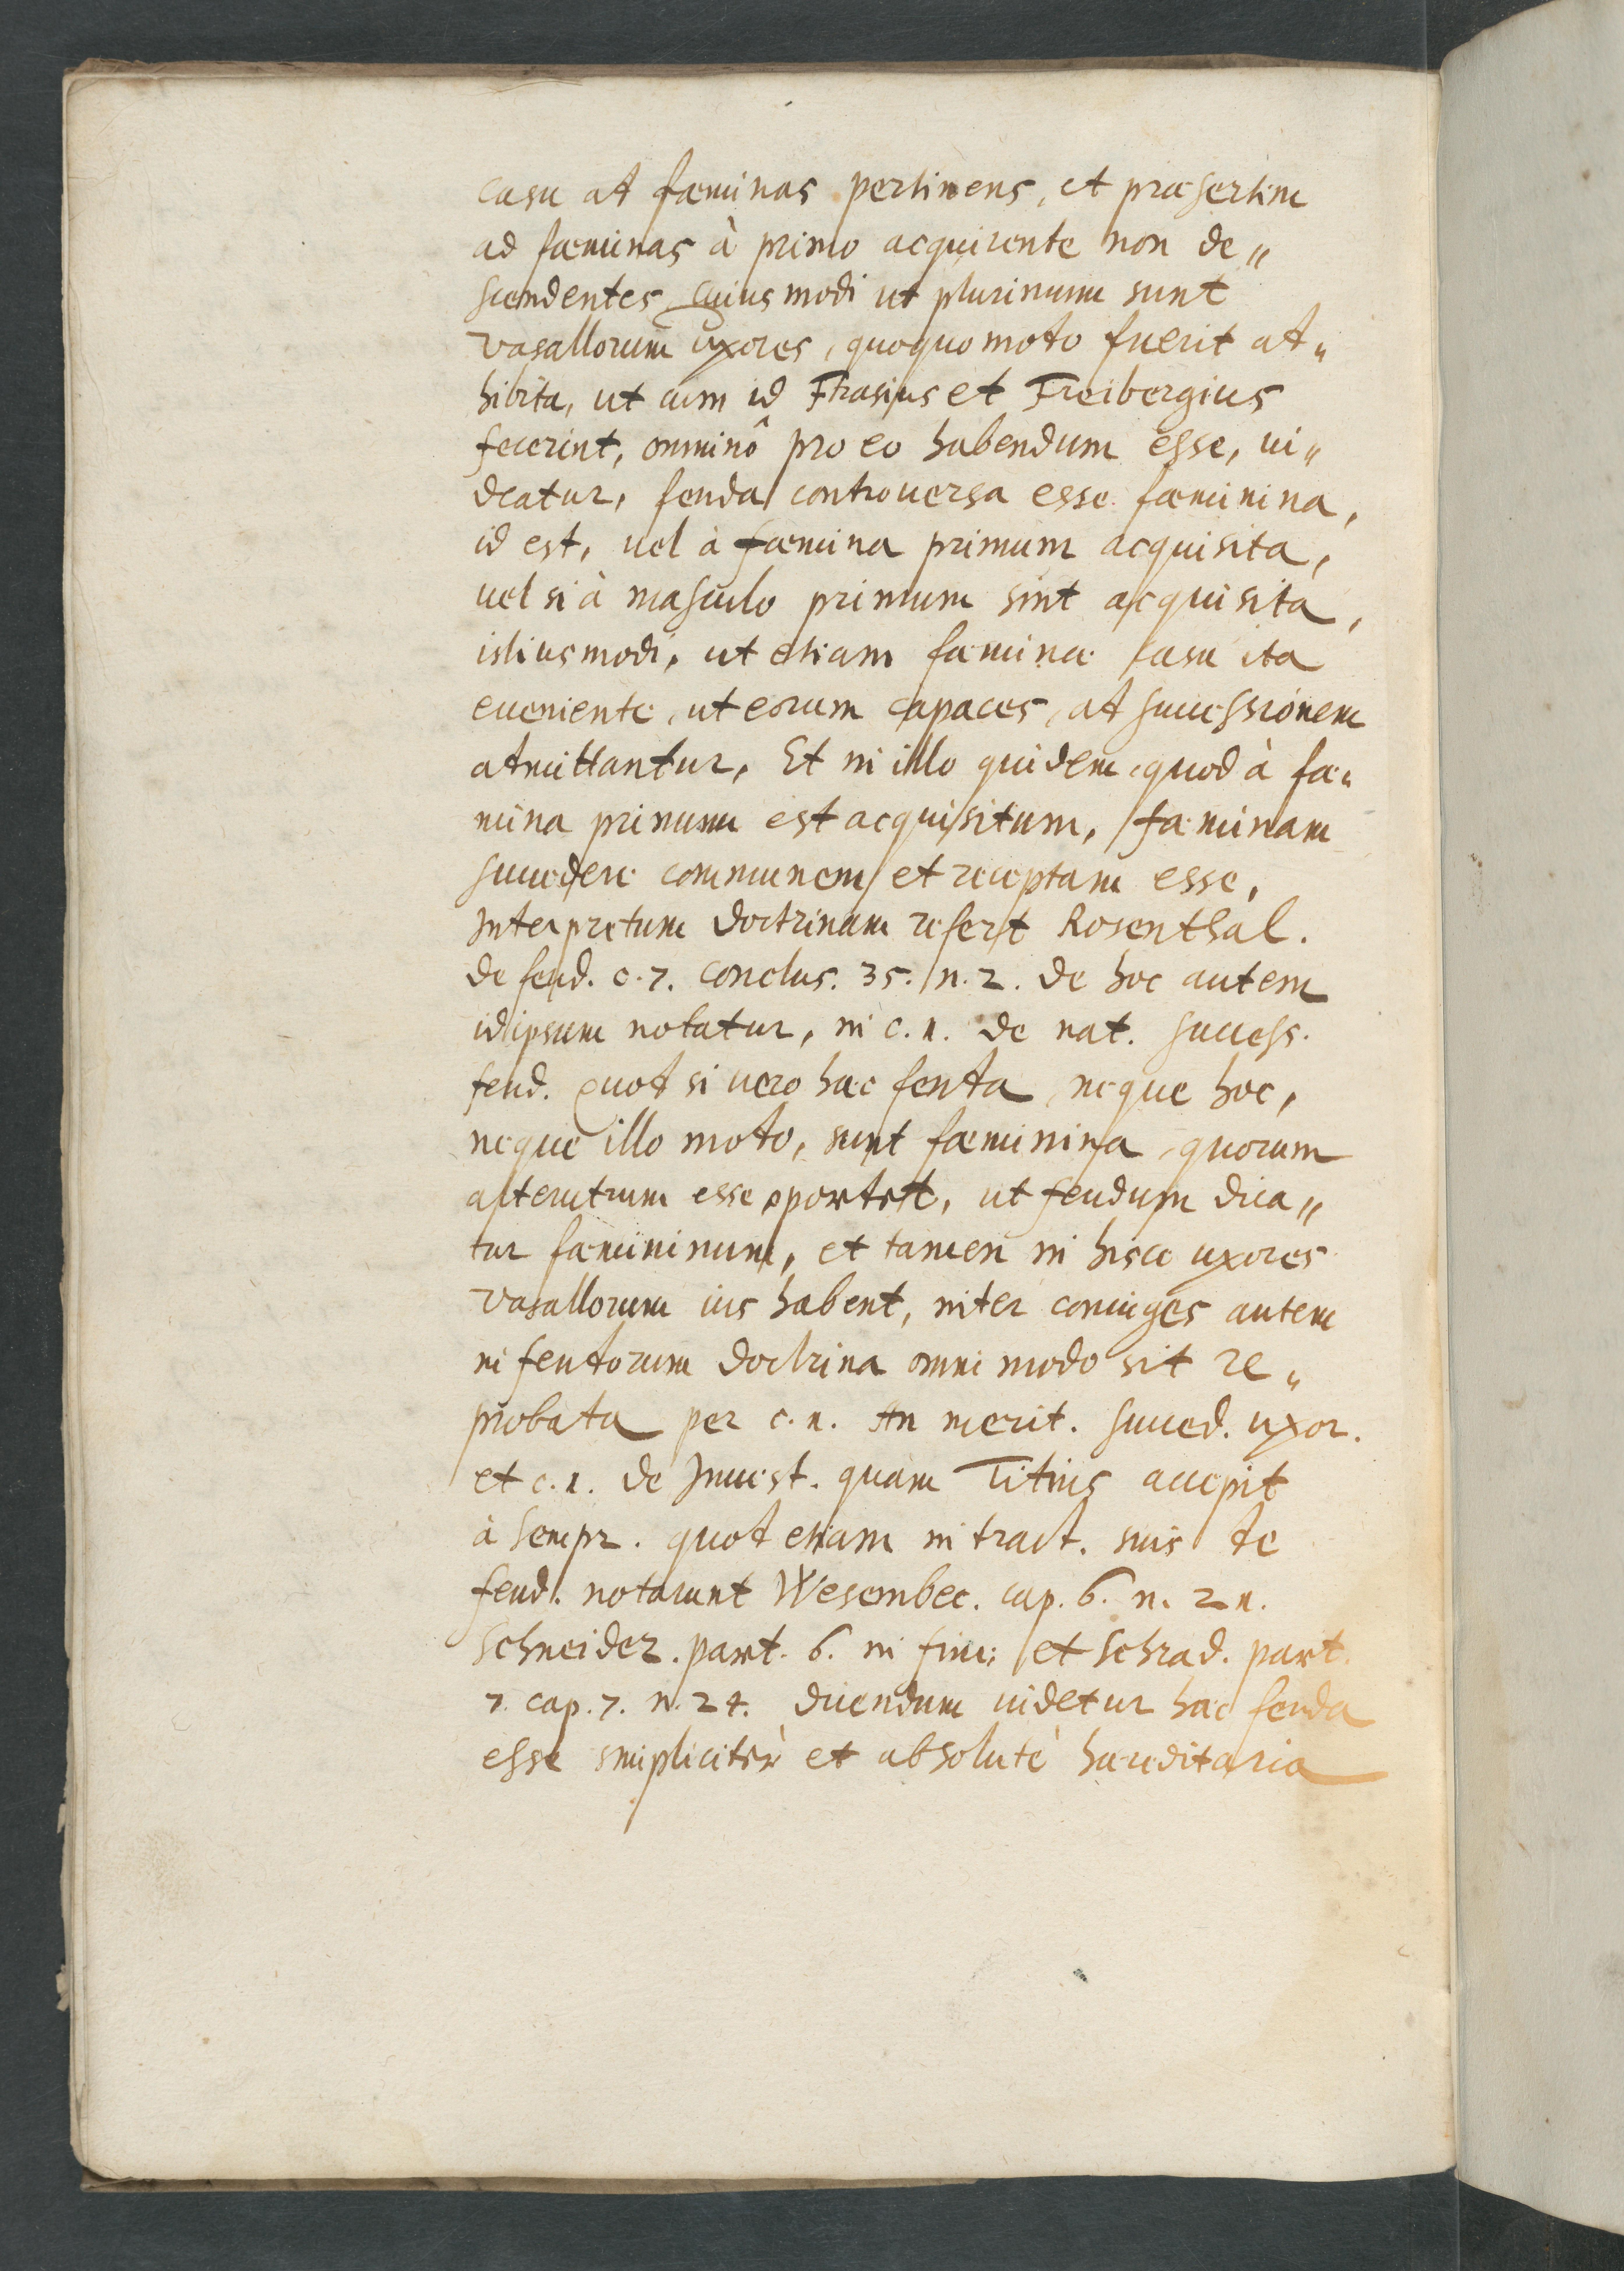 casu at fæminas pertinens, et præsertim
ad fæminas à primo acquirente non de„
scendentes cuiusmodi ut plurimum sunt
vasallorum uxores, quoquo moto fuerit at„
hibita, ut cum id Frasius et Freibergius
fecerint, omninô pro eo habendum esse, ui„
deatur, feuda controuersa esse fæminina,
id est, uel à fæmina primum acquisita,
uel si à masculo primum sint acquisita,
istiusmodi, ut etiam fæminæ casu ita
eueniente, ut eorum capaces, at successionem
atmittantur, Et in illo quidem, quod à fæ„
mina primum est acquisitum, fæminam
succedere communem et receptam esse,
Interpretum doctrinam refert Rosenthal.
de feud. c. 7. conclus. 35. n. 2. de hoc autem
id ipsum notatur, in c. 1. de nat. success.
feud. Quot si uero hæc feuta, neque hoc,
neque illo moto, sunt fæminina, quorum
alterutrum esse oportet, ut feudum dica„
tur fæmininum, et tamen in hisce uxores
vasallorum ius habent, inter coniuges autem
in feutorum doctrina omni modo sit re„
probata per c. 1. An merit. succed. uxor.
et c. 1. de Inuest. quam Titius accepit
à Sempr. quot etiam in tract. suis te
feud. notarunt Wesembec. cap. 6. n. 21.
Schneider. part. 6. in fine; et Schrad. part.
7. cap. 7. n. 24. dicendum uidetur hæc feuda
esse simplicitèr et absolutè hæreditaria